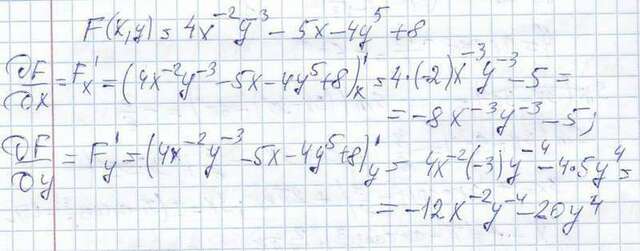 F(x,y) = 4x⁻²y⁻³ - 5x - 4y⁵ + 8
∂F/∂x = F'ₓ = (4x⁻²y⁻³ - 5x - 4y⁵ + 8)'ₓ = 4·(-2)x⁻³y⁻³ - 5 =
= -8x⁻³y⁻³ - 5;
∂F/∂y = F'ᵧ = (4x⁻²y⁻³ - 5x - 4y⁵ + 8)'ᵧ = 4x⁻²(-3)y⁻⁴ - 4·5y⁴ =
= -12x⁻²y⁻⁴ - 20y⁴